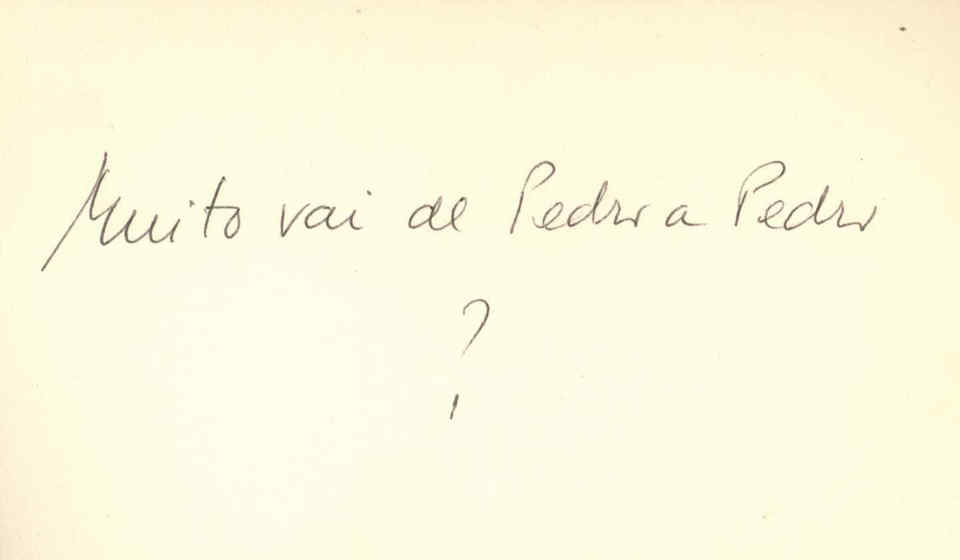 Muito vai de Pedro a Pedro
?